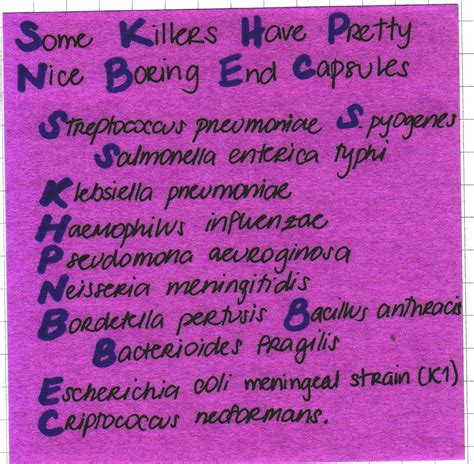 Some Killers Have Pretty
Nice Boring End Capsules
Streptococcus pneumoniae S. pyogenes
Salmonella enterica typhi
Klebsiella pneumoniae
Haemophilus influenzae
Pseudomona aeuroginosa
Neisseria meningitidis
Bordetella pertusis Bacillus anthracis
Bacterioides Fragilis
Escherichia coli meningeal strain (K1)
Criptococcus neoformans.